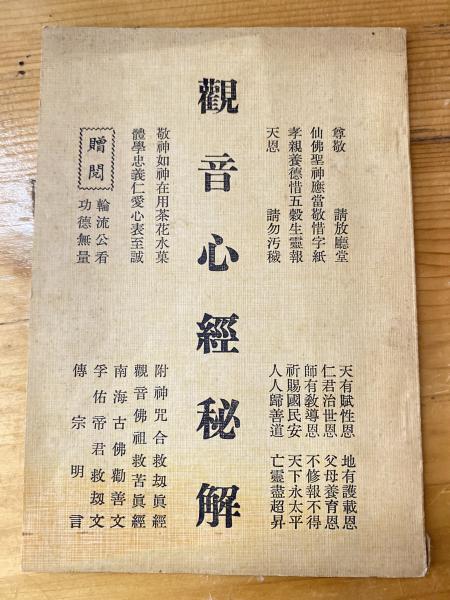 尊敬 請放廳堂
仙佛聖神應當敬惜字紙
孝親養德惜五穀生靈報
天恩 請勿汚穢
天有賦性恩 地有護載恩
仁君治世恩 父母養育恩
師有教導恩 不修報不得
祈賜國民安 天下永太平
人人歸善道 亡靈盡超昇
觀音心經秘解
敬神如神在用茶花水菓
體學忠義仁愛心表至誠
贈閱
輪流公看
功德無量
附神咒合救刼眞經
觀音佛祖救苦眞經
南海古佛勸善文
孚佑帝君救刼文
傳宗明言